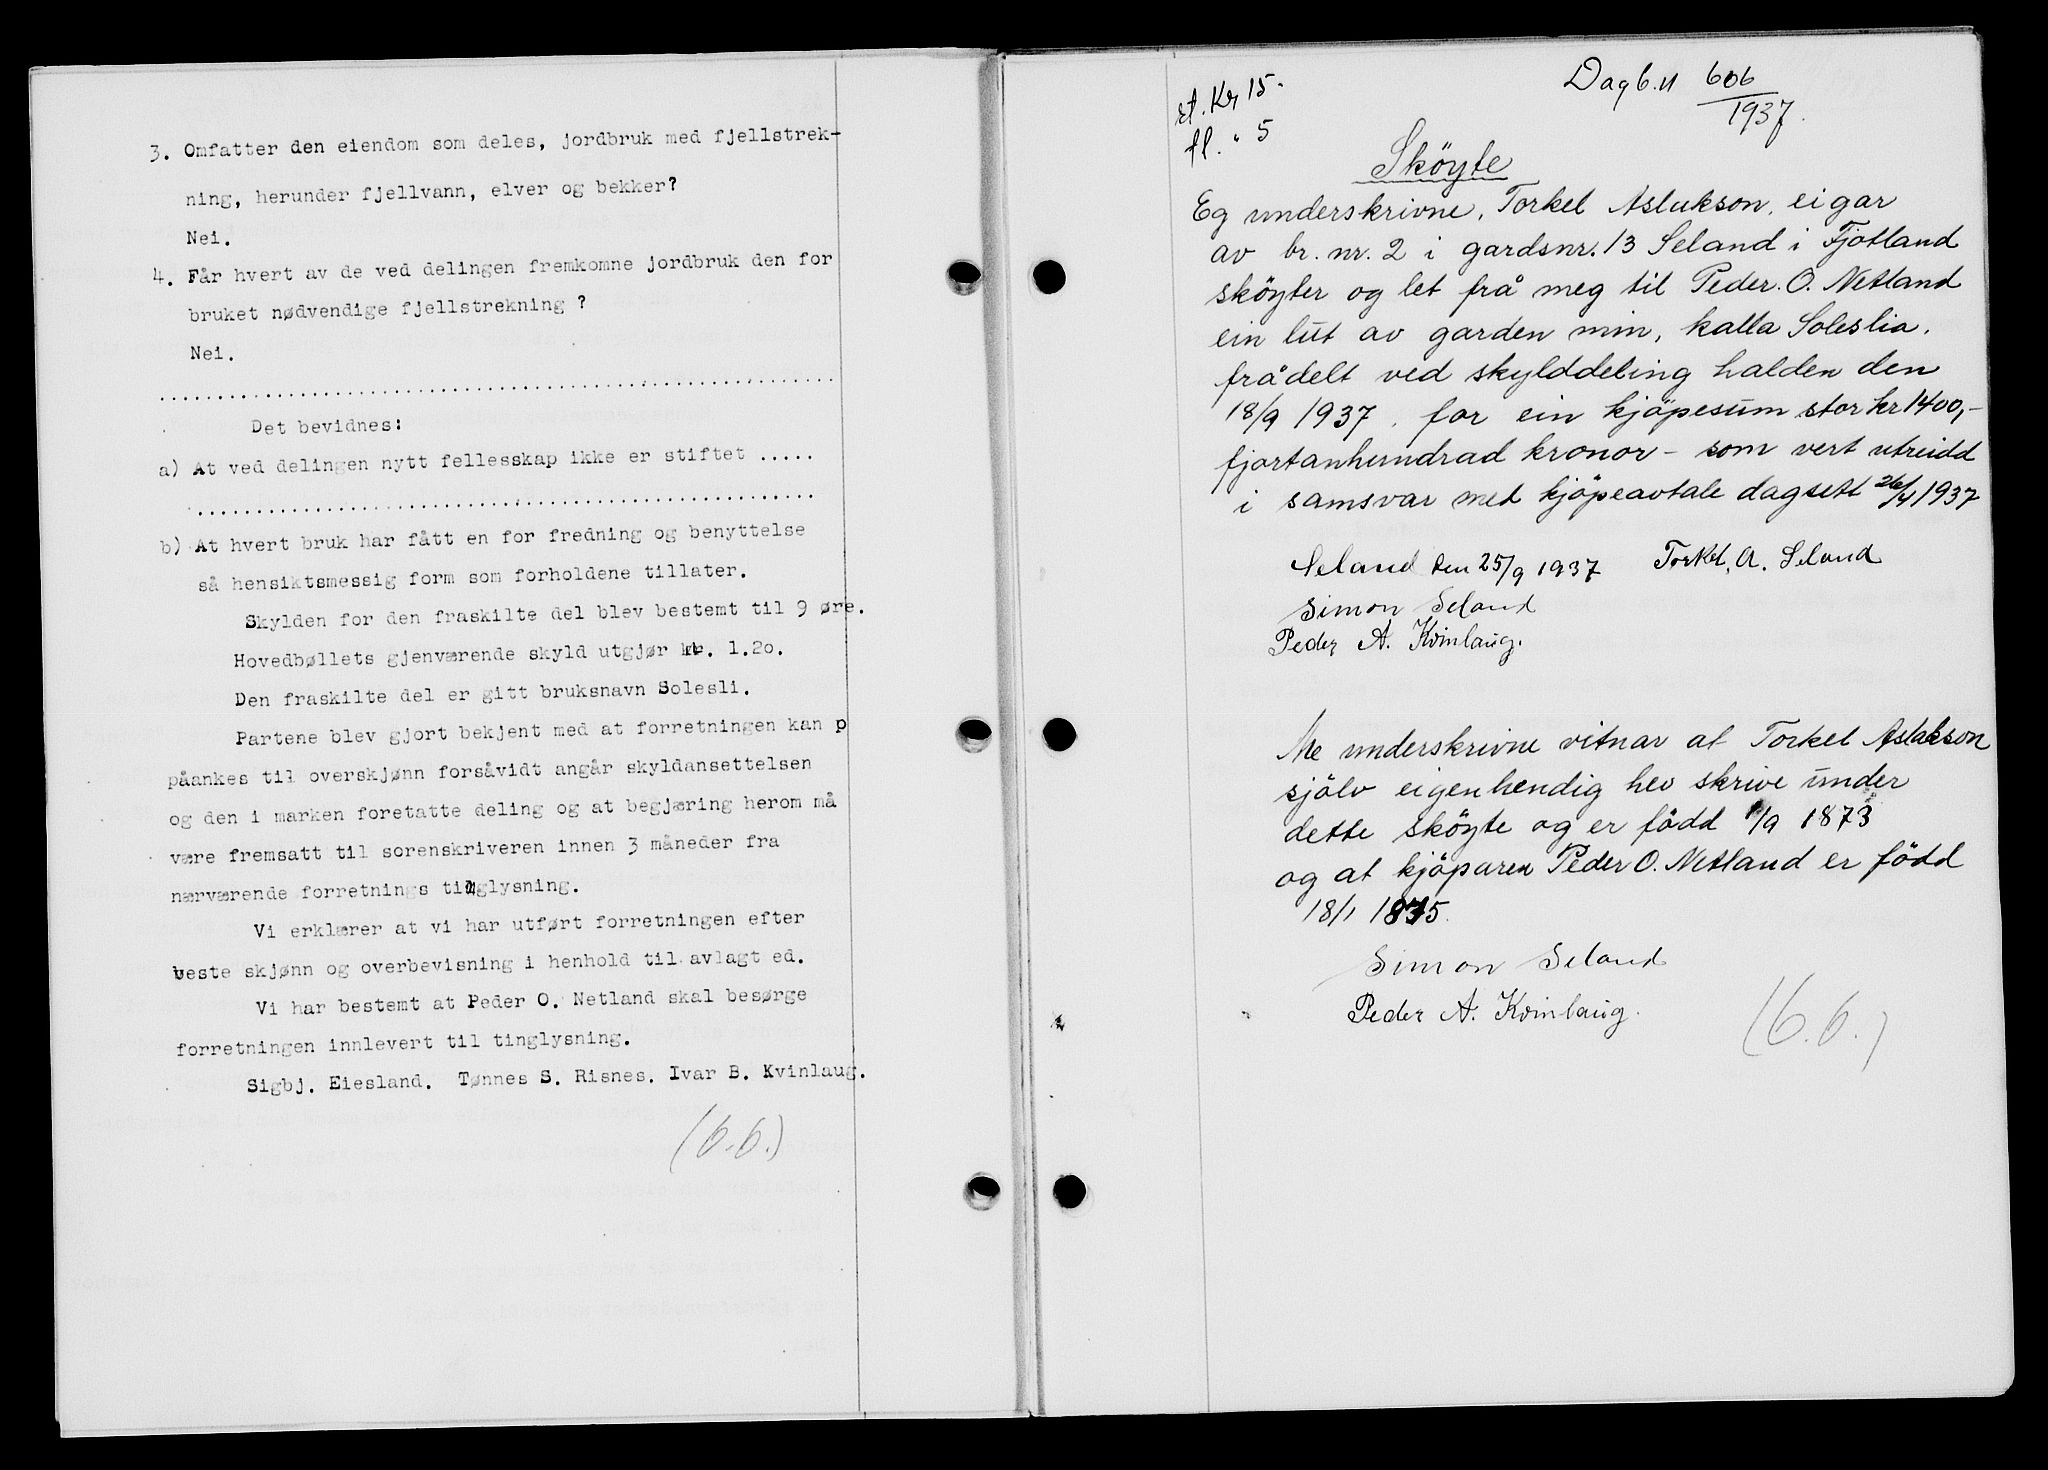 3. Omfatter den eiendom som deles, jordbruk med fjellstrek-
ning, herunder fjellvann, elver og bekker?
Nei.
4. Får hvert av de ved delingen fremkomne jordbruk den for
bruket nødvendige fjellstrekning ?
Nei.
Det bevidnes:
a) At ved delingen nytt fellesskap ikke er stiftet .....
b) At hvert bruk har fått en for fredning og benyttelse
så hensiktsmessig form som forholdene tillater.
Skylden for den fraskilte del blev bestemt til 9 øre.
Hovedbøllets gjenværende skyld utgjør kr. 1.20.
Den fraskilte del er gitt bruksnavn Solesli.
Partene blev gjort bekjent med at forretningen kan p
påankes til overskjønn forsåvidt angår skyldansettelsen
og den i marken foretatte deling og at begjæring herom må
være fremsatt til sorenskriveren innen 3 måneder fra
nærværende forretnings tinglysning.
Vi erklærer at vi har utført forretningen efter
beste skjønn og overbevisning i henhold til avlagt ed.
Vi har bestemt at Peder O. Netland skal besørge
forretningen innlevert til tinglysning.
Sigbj. Eiesland. Tønnes S. Risnes. Ivar B. Kvinlaug.
(6.6.)
Dagb. n 606/1937.
st. Kr 15.
tl. " 5
Sköyte
Eg underskrivne, Torkel Aslakson, eigar
av br. nr. 2 i gardsnr. 13 Seland i Fjotland
sköyter og let frå meg til Peder. O. Netland
ein lut av garden min, kalla Soleslia.
frådelt ved skylddeling halden den
18/9 1937, for ein kjöpesum stor kr 1400,-
fjortanhundrad kronor - som vert utreidd
i samsvar med kjöpeavtale dagsett 26/4 1937
Seland den 25/9 1937 Torkel, A. Seland
Simon Seland
Peder A. Kvinlaug.
Me underskrivne vitnar at Torkel Aslakson
sjölv eigenhendig hev skrive under
dette sköyte og er född 1/9 1873
og at kjöparen Peder O. Netland er född
18/1 1875.
Simon Seland
Peder A. Kvinlaug.
(6.6.)